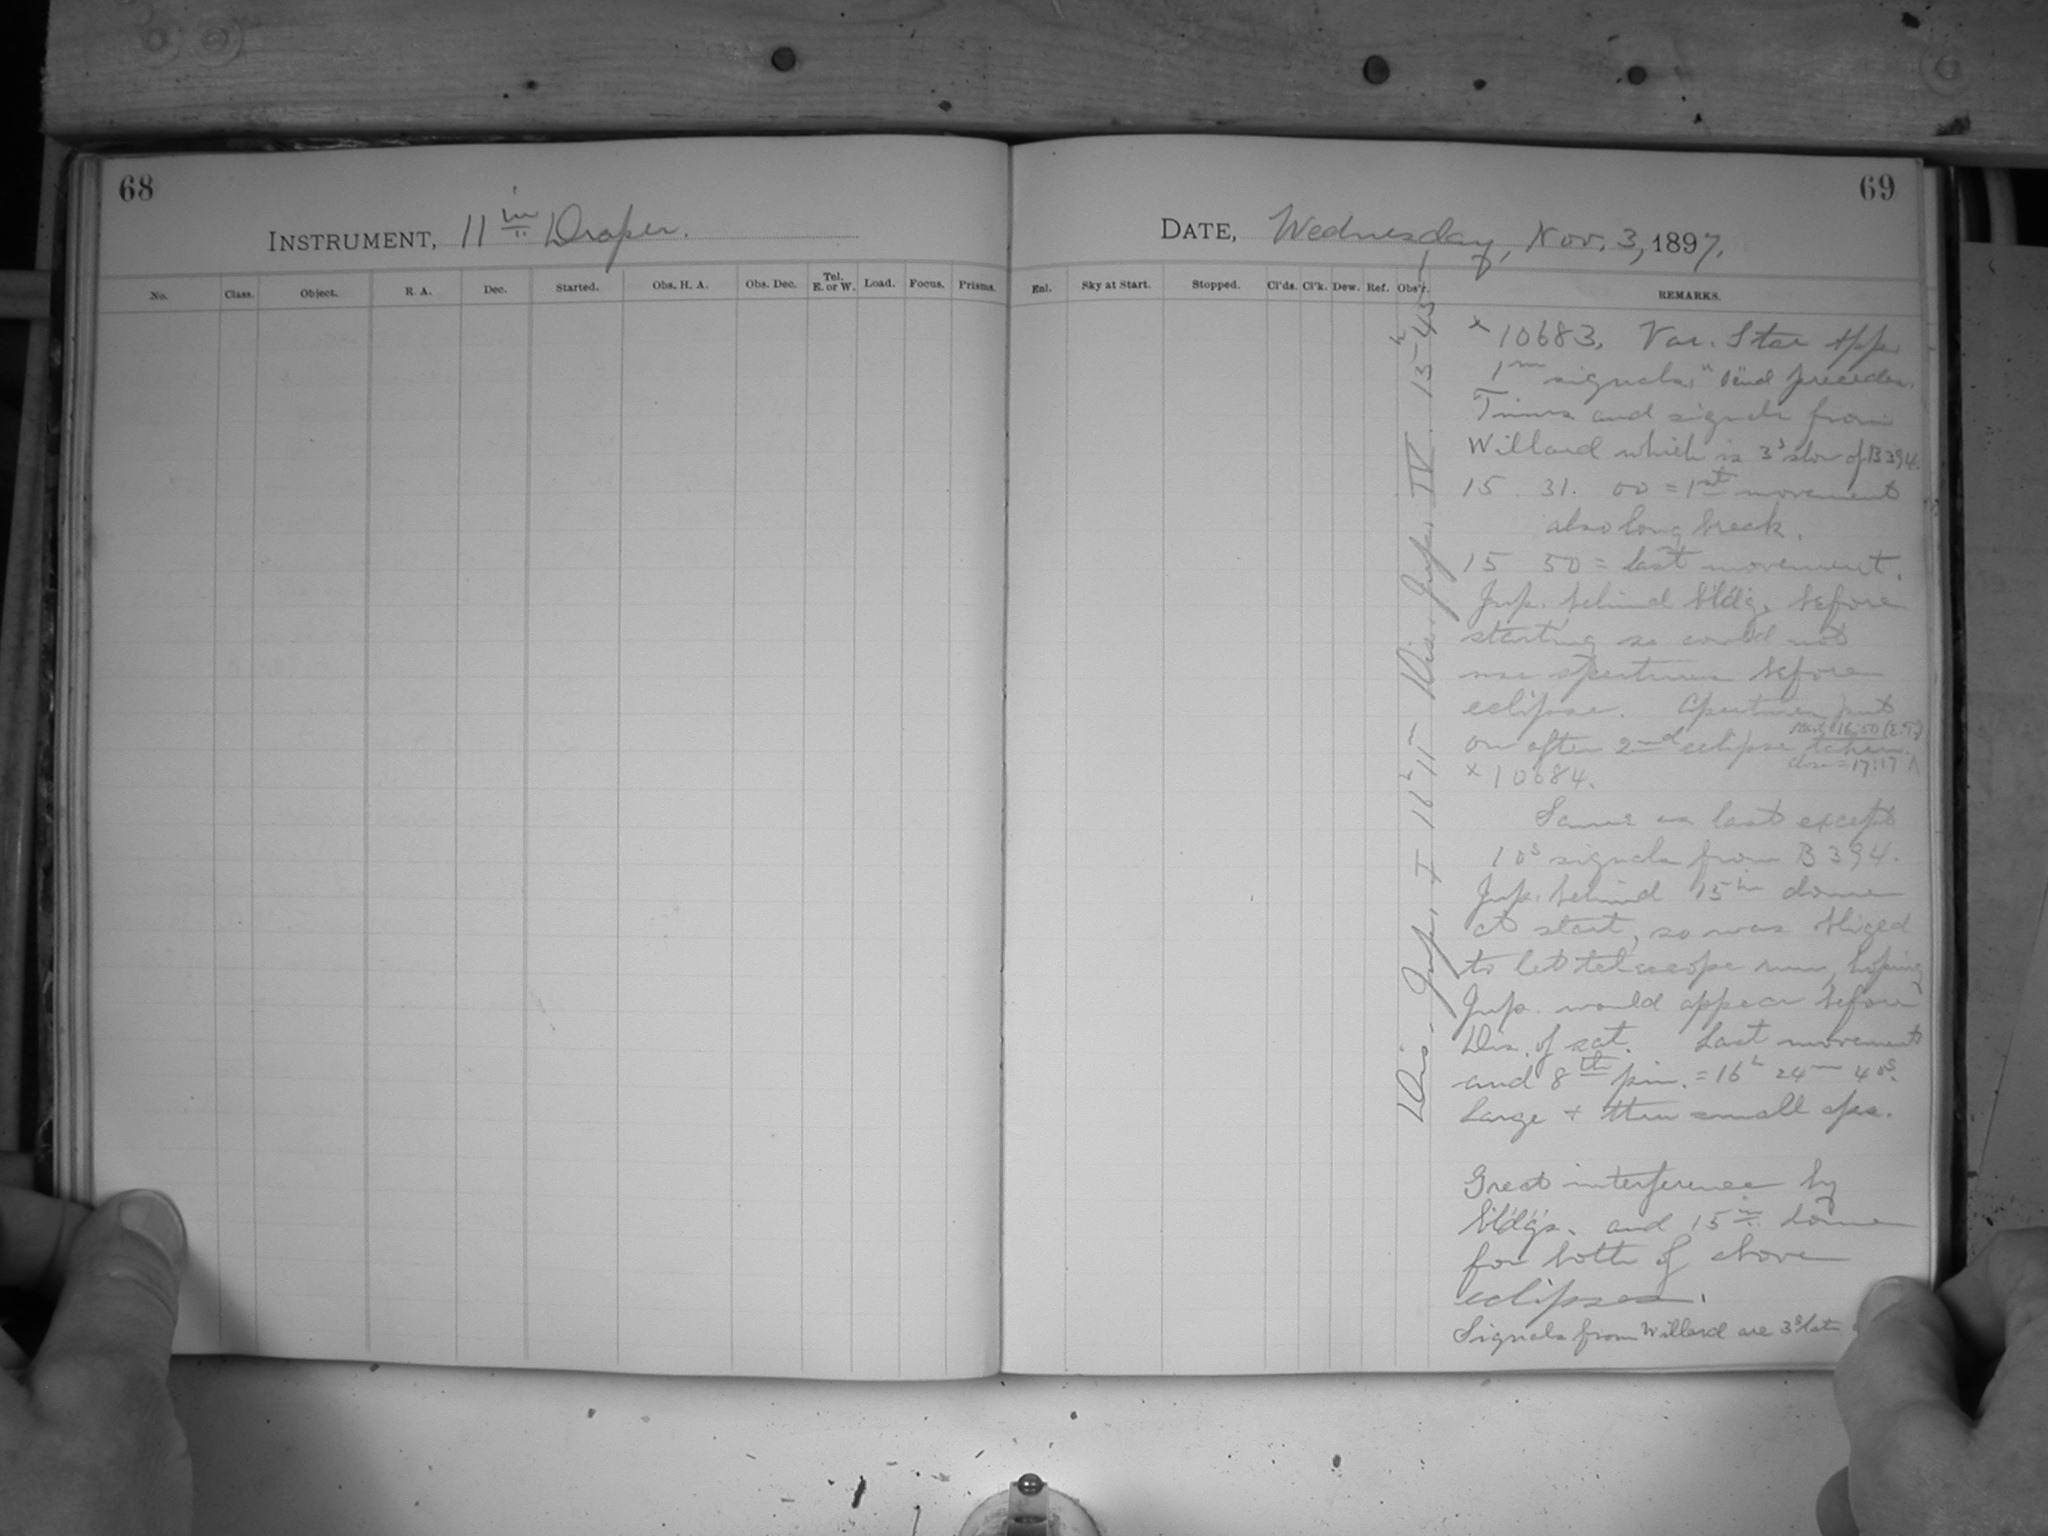 68
INSTRUMENT, 11 in Draper.
No. Class. Object. R. A. Dec. Started. Obs. H. A. Obs. Dec. Tel. E. or W. Load. Focus. Prisms.
69
DATE, Wednesday, Nov. 3, 1897.
Enl. Sky at Start. Stopped. Cl'ds. Cl'k. Dew. Ref. Obs'r. REMARKS.
Dis. Jup. I 16h 15m Dis. Jup. IV. 15h 45
x 10683. Var. Star App.
1m signals, " end precedes.
Times and signals from
Willard which is 3s slow of B394.
15 31. 00 = 1st movement
also long break.
15 50 = last movement.
Jup. behind bld'g. before
starting so could not
use apertures before
eclipse. Apertures put
on after 2nd eclipse taken.
close = 17:17
x 10684.
Same as last except
10s signals from B 394.
Jup. behind 15in dome
at start, so was obliged
to let telescope run, hoping
Jup. would appear before
Dis. of sat. Last movement
and 8th pin. = 16h 24m 40s.
Large + then small aps.
Great interference by
bld'g's. and 15in dome
for both of above
eclipses.
Signals from Willard are 3s late